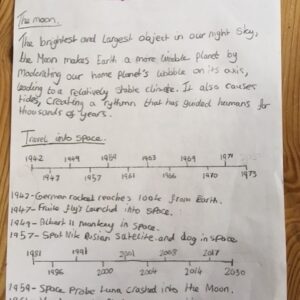 The moon.
The brightest and largest object in our night sky,
the Moon makes Earth a more livable planet by
moderating our home planet's wobble on its axis,
leading to a relatively stable climate. It also causes
tides, creating a rythmn that has guided humans for
thousands of years.
Travel into space.
1942 1949 1959 1963 1969 1971
1947 1957 1961 1970 1973
1942- German rocket reaches 100k from Earth.
1947- Fruite fly's launched into space.
1949- Albert II monkey in space.
1957- Russian satelite and dog in space
1981 1998 2001 2008 2017
2000 2004 2014 2030
1959- Space Probe Luna crashed into the Moon.